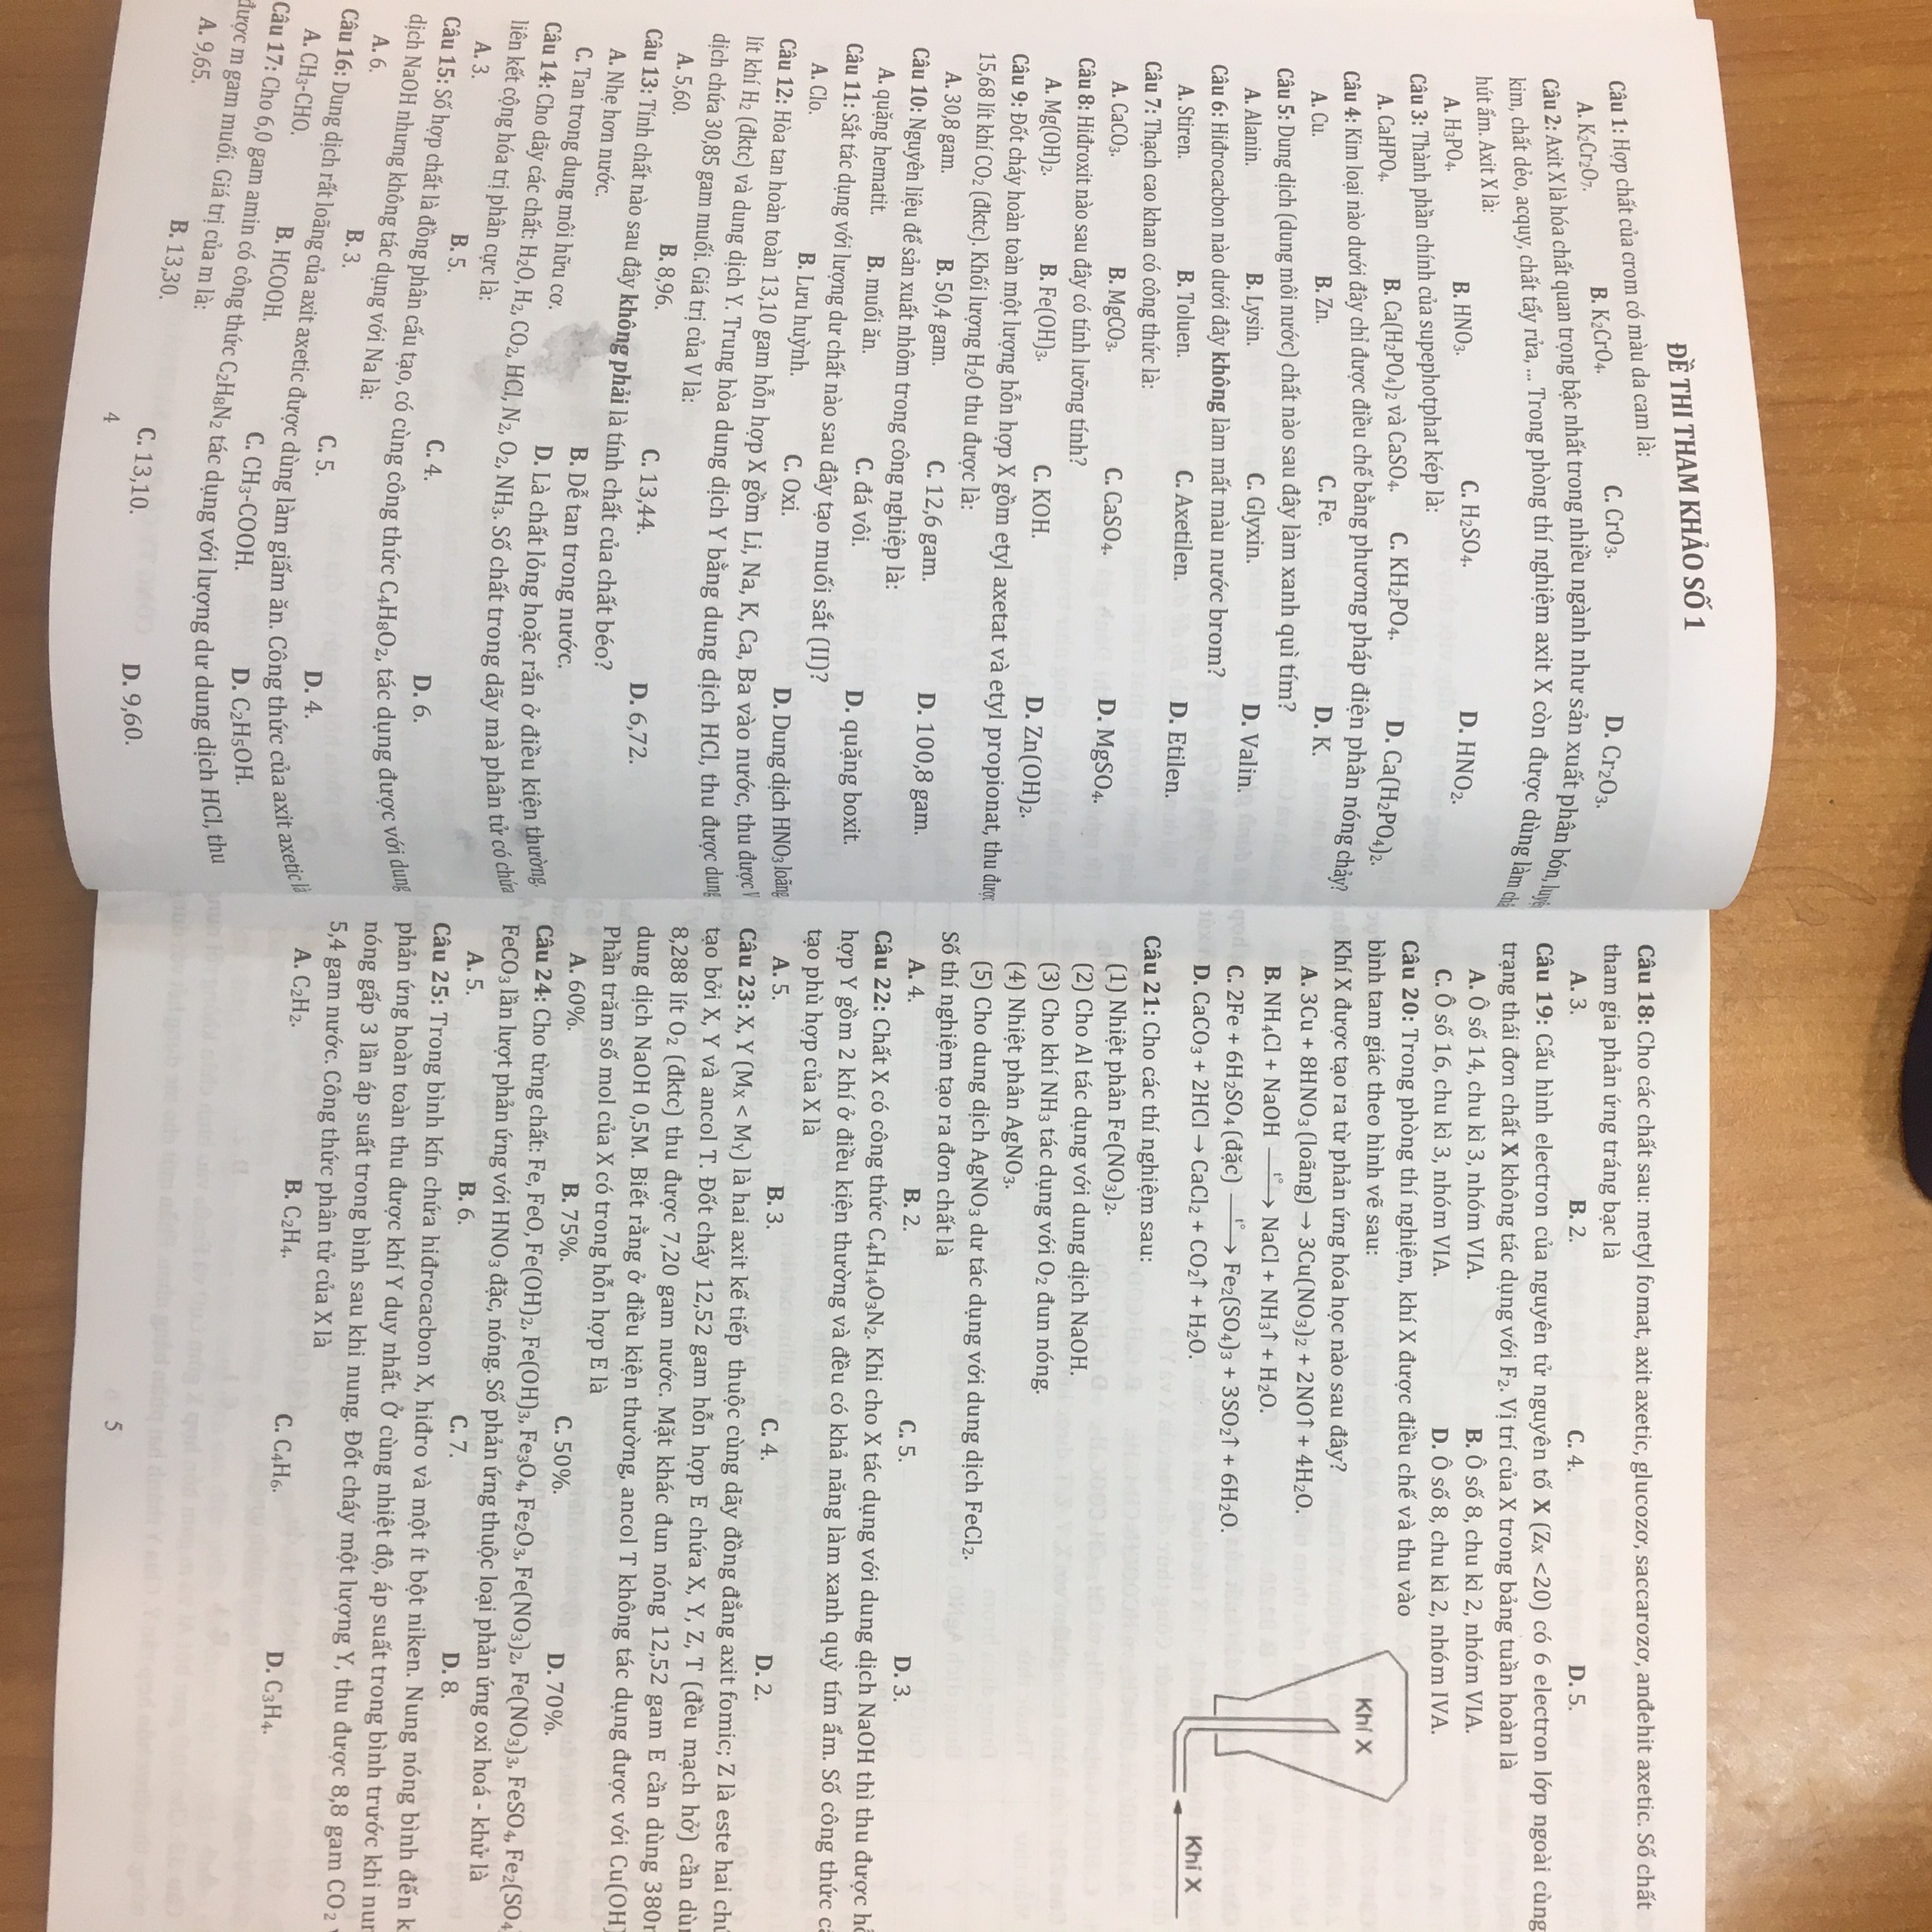 ĐỀ THI THAM KHẢO SỐ 1
Câu 1: Hợp chất của crom có màu da cam là:
A. K₂Cr₂O₇. B. K₂CrO₄. C. CrO₃. D. Cr₂O₃.
Câu 2: Axit X là hóa chất quan trọng bậc nhất trong nhiều ngành như sản xuất phân bón, luyện
kim, chất dẻo, acquy, chất tẩy rửa, ... Trong phòng thí nghiệm axit X còn được dùng làm chất
hút ẩm. Axit X là:
A. H₃PO₄. B. HNO₃. C. H₂SO₄. D. HNO₂.
Câu 3: Thành phần chính của supephotphat kép là:
A. CaHPO₄. B. Ca(H₂PO₄)₂ và CaSO₄. C. KH₂PO₄. D. Ca(H₂PO₄)₂.
Câu 4: Kim loại nào dưới đây chỉ được điều chế bằng phương pháp điện phân nóng chảy?
A. Cu. B. Zn. C. Fe. D. K.
Câu 5: Dung dịch (dung môi nước) chất nào sau đây làm xanh quì tím?
A. Alanin. B. Lysin. C. Glyxin. D. Valin.
Câu 6: Hiđrocacbon nào dưới đây không làm mất màu nước brom?
A. Stiren. B. Toluen. C. Axetilen. D. Etilen.
Câu 7: Thạch cao khan có công thức là:
A. CaCO₃. B. MgCO₃. C. CaSO₄. D. MgSO₄.
Câu 8: Hiđroxit nào sau đây có tính lưỡng tính?
A. Mg(OH)₂. B. Fe(OH)₃. C. KOH. D. Zn(OH)₂.
Câu 9: Đốt cháy hoàn toàn một lượng hỗn hợp X gồm etyl axetat và etyl propionat, thu được
15,68 lít khí CO₂ (đktc). Khối lượng H₂O thu được là:
A. 30,8 gam. B. 50,4 gam. C. 12,6 gam. D. 100,8 gam.
Câu 10: Nguyên liệu để sản xuất nhôm trong công nghiệp là:
A. quặng hematit. B. muối ăn. C. đá vôi. D. quặng boxit.
Câu 11: Sắt tác dụng với lượng dư chất nào sau đây tạo muối sắt (II)?
A. Clo. B. Lưu huỳnh. C. Oxi. D. Dung dịch HNO₃ loãng
Câu 12: Hòa tan hoàn toàn 13,10 gam hỗn hợp X gồm Li, Na, K, Ca, Ba vào nước, thu được V
lít khí H₂ (đktc) và dung dịch Y. Trung hòa dung dịch Y bằng dung dịch HCl, thu được dung
dịch chứa 30,85 gam muối. Giá trị của V là:
A. 5,60. B. 8,96. C. 13,44. D. 6,72.
Câu 13: Tính chất nào sau đây không phải là tính chất của chất béo?
A. Nhẹ hơn nước. B. Dễ tan trong nước.
C. Tan trong dung môi hữu cơ. D. Là chất lỏng hoặc rắn ở điều kiện thường.
Câu 14: Cho dãy các chất: H₂O, H₂, CO₂, HCl, N₂, O₂, NH₃. Số chất trong dãy mà phân tử có chứa
liên kết cộng hóa trị phân cực là:
A. 3. B. 5. C. 4. D. 6.
Câu 15: Số hợp chất là đồng phân cấu tạo, có cùng công thức C₄H₈O₂, tác dụng được với dung
dịch NaOH nhưng không tác dụng với Na là:
A. 6. B. 3. C. 5. D. 4.
Câu 16: Dung dịch rất loãng của axit axetic được dùng làm giấm ăn. Công thức của axit axetic là
A. CH₃-CHO. B. HCOOH. C. CH₃-COOH. D. C₂H₅OH.
Câu 17: Cho 6,0 gam amin có công thức C₂H₈N₂ tác dụng với lượng dư dung dịch HCl, thu
được m gam muối. Giá trị của m là:
A. 9,65. B. 13,30. C. 13,10. D. 9,60.
4
Câu 18: Cho các chất sau: metyl fomat, axit axetic, glucozơ, saccarozơ, anđehit axetic. Số chất
tham gia phản ứng tráng bạc là
A. 3. B. 2. C. 4. D. 5.
Câu 19: Cấu hình electron của nguyên tử nguyên tố X (Zₓ <20) có 6 electron lớp ngoài cùng
trạng thái đơn chất X không tác dụng với F₂. Vị trí của X trong bảng tuần hoàn là
A. Ô số 14, chu kì 3, nhóm VIA. B. Ô số 8, chu kì 2, nhóm VIA.
C. Ô số 16, chu kì 3, nhóm VIA. D. Ô số 8, chu kì 2, nhóm IVA.
Câu 20: Trong phòng thí nghiệm, khí X được điều chế và thu vào
bình tam giác theo hình vẽ sau:
Khí X được tạo ra từ phản ứng hóa học nào sau đây?
A. 3Cu + 8HNO₃ (loãng) → 3Cu(NO₃)₂ + 2NO↑ + 4H₂O.
B. NH₄Cl + NaOH —t°→ NaCl + NH₃↑ + H₂O.
C. 2Fe + 6H₂SO₄ (đặc) —t°→ Fe₂(SO₄)₃ + 3SO₂↑ + 6H₂O.
D. CaCO₃ + 2HCl → CaCl₂ + CO₂↑ + H₂O.
Khí X
Khí X
Câu 21: Cho các thí nghiệm sau:
(1) Nhiệt phân Fe(NO₃)₂.
(2) Cho Al tác dụng với dung dịch NaOH.
(3) Cho khí NH₃ tác dụng với O₂ đun nóng.
(4) Nhiệt phân AgNO₃.
(5) Cho dung dịch AgNO₃ dư tác dụng với dung dịch FeCl₂.
Số thí nghiệm tạo ra đơn chất là
A. 4. B. 2. C. 5. D. 3.
Câu 22: Chất X có công thức C₄H₁₄O₃N₂. Khi cho X tác dụng với dung dịch NaOH thì thu được
hợp Y gồm 2 khí ở điều kiện thường và đều có khả năng làm xanh quỳ tím ẩm. Số công thức
tạo phù hợp của X là
A. 5. B. 3. C. 4. D. 2.
Câu 23: X, Y (Mₓ < Mᵧ) là hai axit kế tiếp thuộc cùng dãy đồng đẳng axit fomic; Z là este hai
tạo bởi X, Y và ancol T. Đốt cháy 12,52 gam hỗn hợp E chứa X, Y, Z, T (đều mạch hở) cần
8,288 lít O₂ (đktc) thu được 7,20 gam nước. Mặt khác đun nóng 12,52 gam E cần dùng
dung dịch NaOH 0,5M. Biết rằng ở điều kiện thường, ancol T không tác dụng được với Cu(OH)
Phần trăm số mol của X có trong hỗn hợp E là
A. 60%. B. 75%. C. 50%. D. 70%.
Câu 24: Cho từng chất: Fe, FeO, Fe(OH)₂, Fe(OH)₃, Fe₃O₄, Fe₂O₃, Fe(NO₃)₂, Fe(NO₃)₃, FeSO₄, Fe₂(SO₄
FeCO₃ lần lượt phản ứng với HNO₃ đặc, nóng. Số phản ứng thuộc loại phản ứng oxi hoá - khử là
A. 5. B. 6. C. 7. D. 8.
Câu 25: Trong bình kín chứa hiđrocacbon X, hiđro và một ít bột niken. Nung nóng bình đến
phản ứng hoàn toàn thu được khí Y duy nhất. Ở cùng nhiệt độ, áp suất trong bình trước khi
nóng gấp 3 lần áp suất trong bình sau khi nung. Đốt cháy một lượng Y, thu được 8,8 gam CO₂
5,4 gam nước. Công thức phân tử của X là
A. C₂H₂. B. C₂H₄. C. C₄H₆. D. C₃H₄.
5